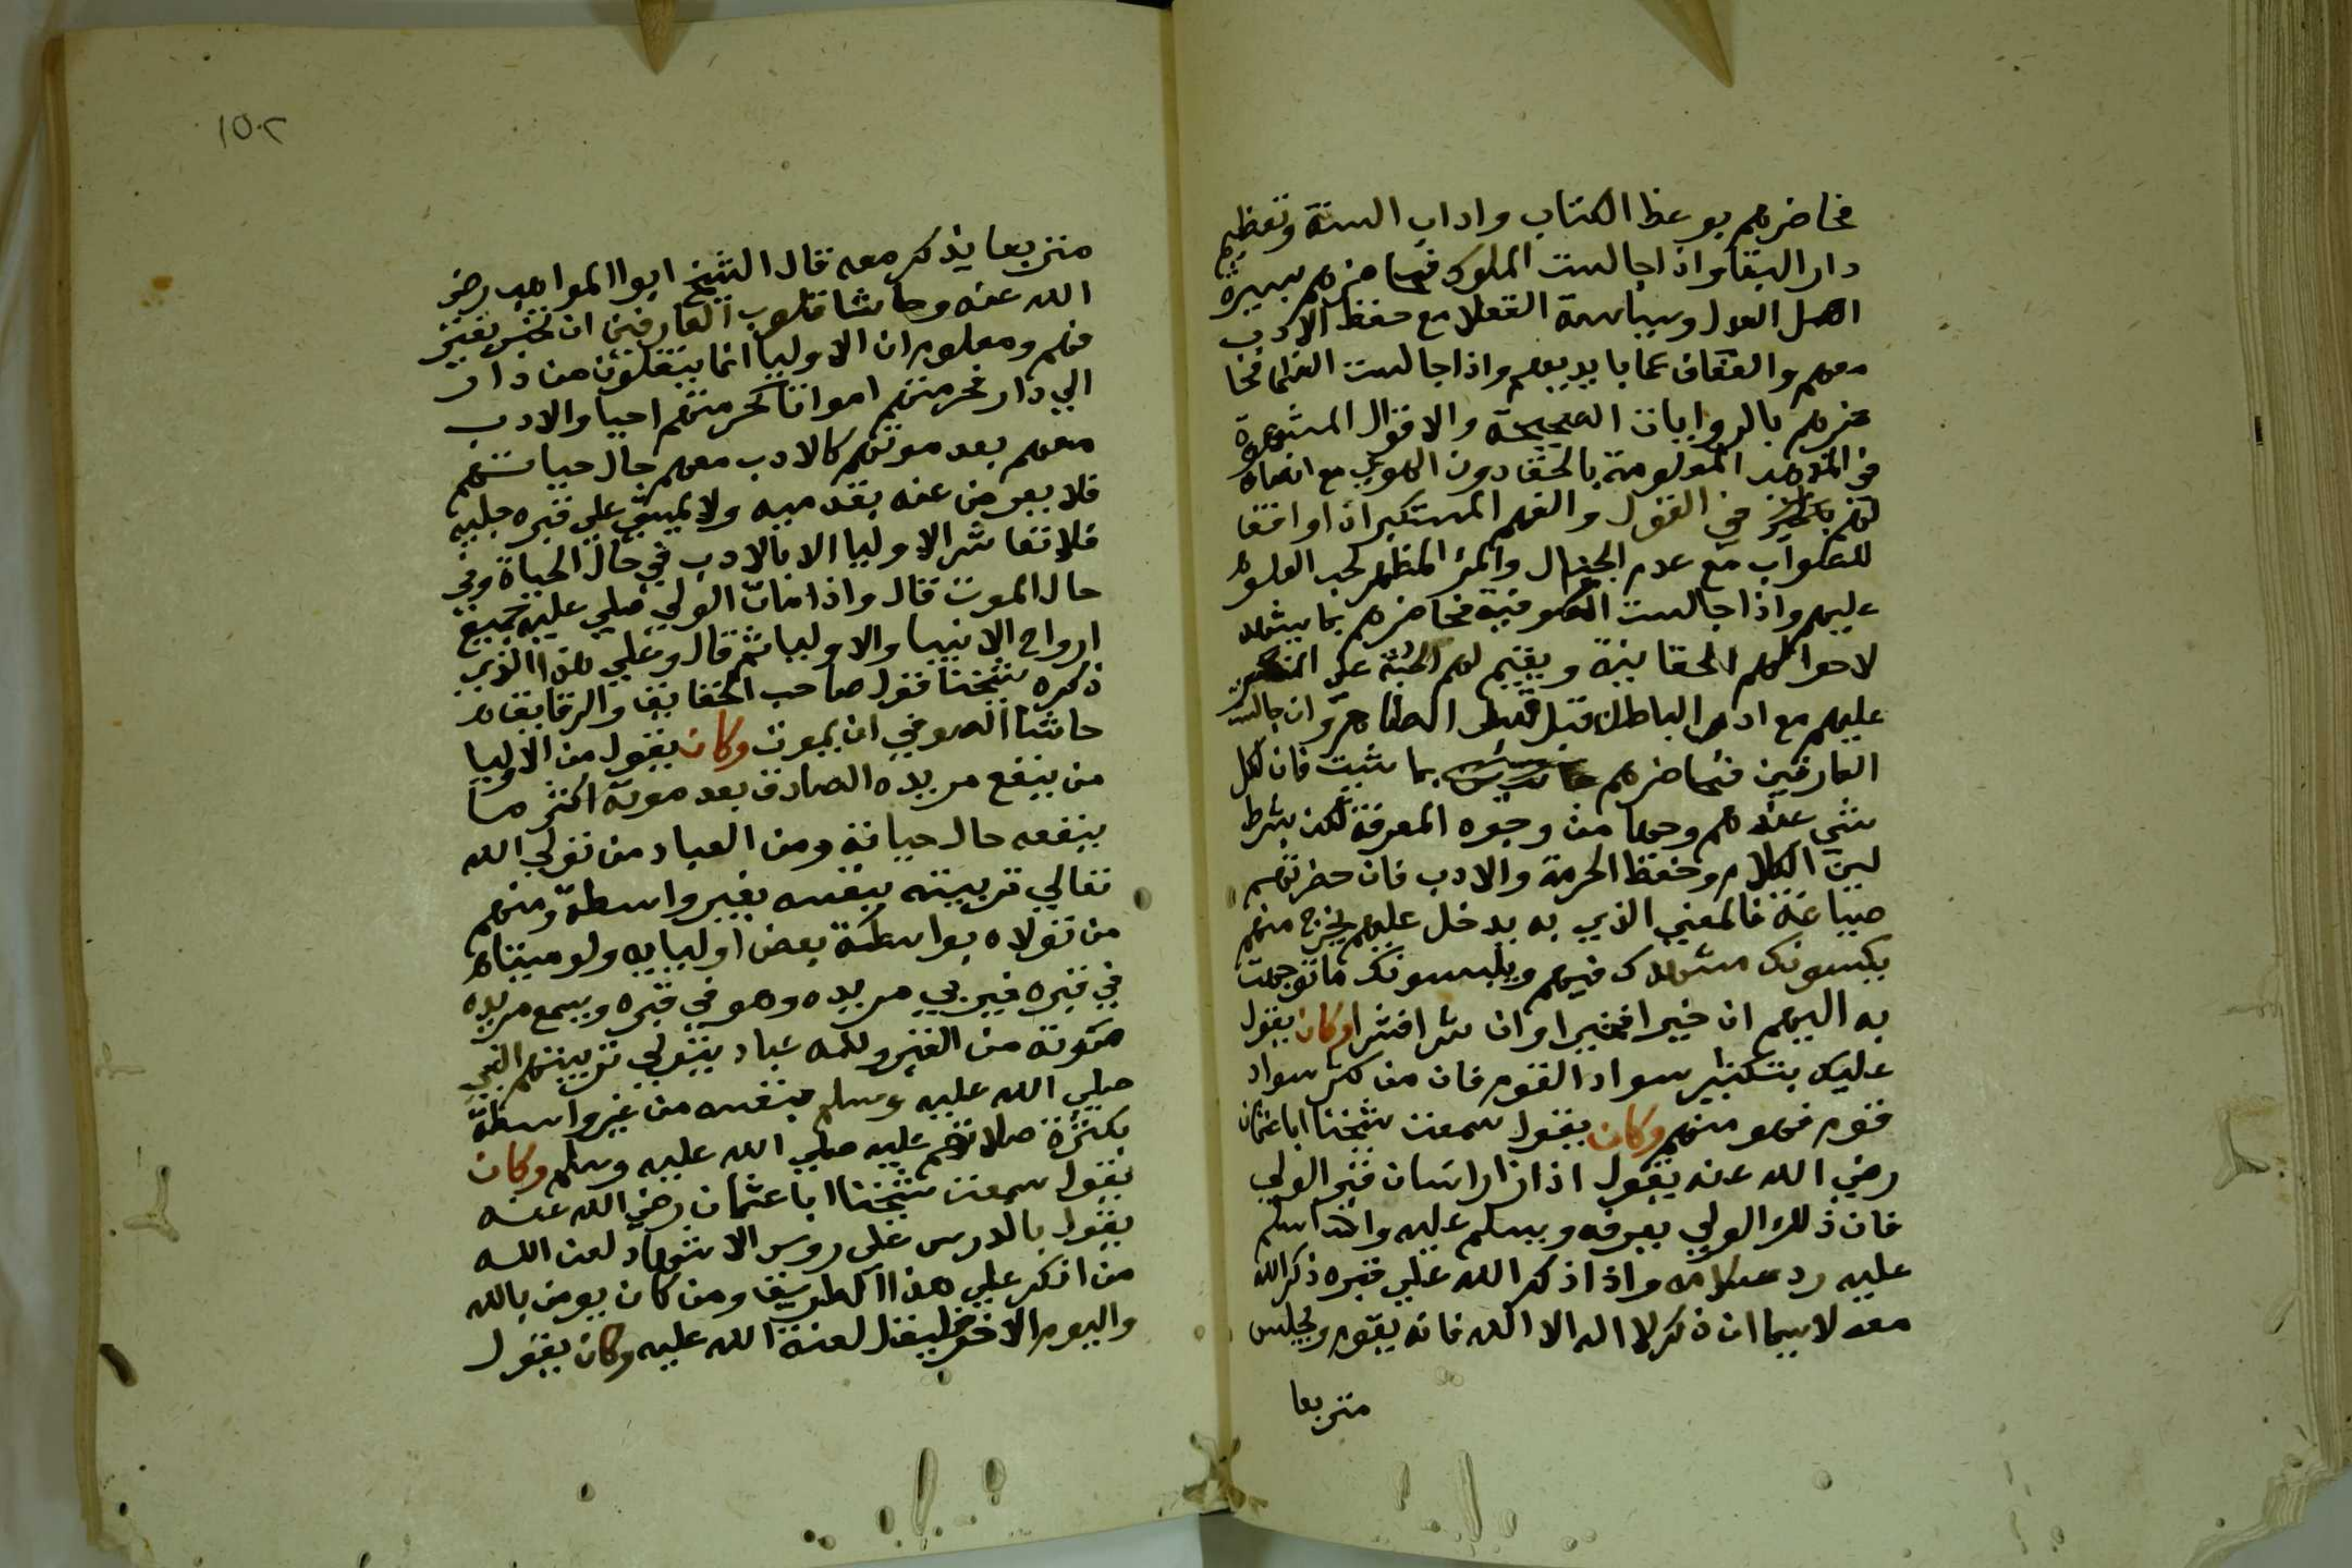 فحاضرهم بوعظ الكتاب واداب السنة وتعظيم
دار البقا واذا جالست الملوك فحاضرهم بسيرة
اهل العدل وسياسة العقلا مع حفظ الادب
معهم والعفاف عما بايديهم واذا جالست العلما فحا
ضرهم بالروايات الصحيحة والاقوال المشهورة
في المذاهد المعلومة بالحق دون الهوي مع انصاة
لهم في القول والفهم المستكبر ان اوافقا
للصواب مع عدم الجدال والمر المظهر لحب العلو
عليهم واذا جالست الصوفية فحاضرهم بما يشهد
لاحوالهم الحقانية ويقيم لهم الحجة علي المنكر
عليهم مع ادب الباطن قبل الظاهر وان جالست
العارفين فحاضرهم بما شيت فان لكل
شي عندهم وجها من وجوه المعرفة لكن بشرط
لين الكلام وحفظ الحرمة والادب فان حضرتهم
صباغة فالمعني الذي به يدخل عليهم يخرج منهم
يكسونك مشهدك فيهم ويلبسونك ما توجهت
به اليهم ان خيرا فخيرا وان شرا فشرا وكان يقول
عليك بتكثير سواد القوم فان من كثر سواد
قوم فهو منهم وكان يقول سمعت شيخنا ابا عثمان
رضي الله عنه يقول اذا زار انسان قبر الولي
فان ذلك الولي يعرفه ويسلم عليه واذا سلم
عليه رد سلامه واذا ذكر الله علي قبره ذكر الله
معه لاسيما ان ذكر لا اله الا الله فانه يقوم ويجلس
متربعا
١٥٠٢
متربعا يذكر معه قال الشيخ ابوا المواهب رضي
الله عنه وحاشا قلوب العارفين ان تخبر بغير
فهم ومعلوم ان الاوليا انما ينقلون من دار
الي دار فحرمتهم امواتا كحرمتهم احيا والادب
معهم بعد موتهم كالادب معهم حال حياتهم
فلا يعرض عنه بقدميه ولا يمشي علي قبره جليه
فلا تعاشر الاوليا الا بالادب في حال الحياة وفي
حال الموت قال واذا مات الولي صلي عليه جميع
ارواح الانبيا والاوليا ثم قال وعلي هذا الذي
ذكره شيخنا قول صاحب الحقايق والرقايق
حاشا الصوفي ان يموت وكان يقول من الاوليا
من ينفع مريده الصادق بعد موته اكثر ما
ينفعه حال حياته ومن العباد من تولي الله
تعالي تربيته بنفسه بغير واسطة ومنهم
من تولاه بواسطة بعض اوليايه ولو ميتا
في قبره فيربي مريده وهو في قبره ويسمع مريده
صوته من القبر ولله عباد يتولي تربيتهم النبي
صلي الله عليه وسلم بنفسه من غير واسطة
بكثرة صلاتهم عليه صلي الله عليه وسلم وكان
يقول سمعت شيخنا ابا عثمان رضي الله عنه
يقول بالدرس علي روس الاشهاد لعن الله
من انكر علي هذا الطريق ومن كان يومن بالله
واليوم الاخر فليقل لعنة الله عليه وكان يقول